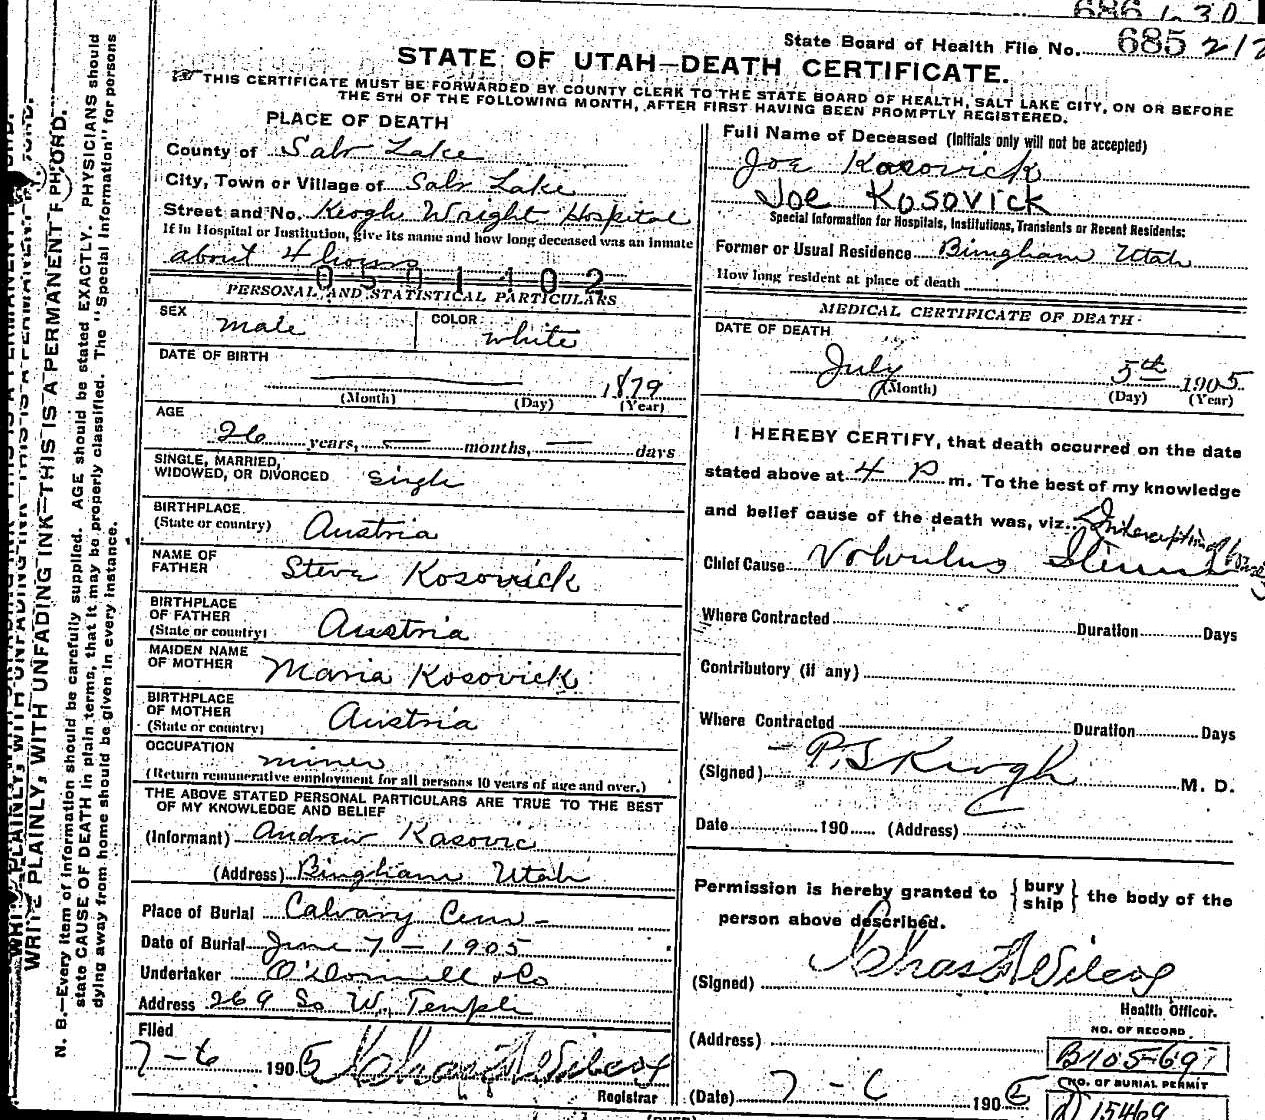 686 1230
State Board of Health File No. 685 212
STATE OF UTAH—DEATH CERTIFICATE.
THIS CERTIFICATE MUST BE FORWARDED BY COUNTY CLERK TO THE STATE BOARD OF HEALTH, SALT LAKE CITY, ON OR BEFORE
THE 5TH OF THE FOLLOWING MONTH, AFTER FIRST HAVING BEEN PROMPTLY REGISTERED.
WRITE PLAINLY, WITH UNFADING INK—THIS IS A PERMANENT RECORD.
N. B.—Every item of information should be carefully supplied. AGE should be stated EXACTLY. PHYSICIANS should
state CAUSE OF DEATH in plain terms, that it may be properly classified. The "Special Information" for persons
dying away from home should be given in every instance.
PLACE OF DEATH
County of Salt Lake
City, Town or Village of Salt Lake
Street and No. Keogh Wright Hospital
If in Hospital or Institution, give its name and how long deceased was an inmate
about 4 hours
0501102
PERSONAL AND STATISTICAL PARTICULARS
SEX male COLOR white
DATE OF BIRTH
— 1879
(Month) (Day) (Year)
AGE
26 years, — months, — days
SINGLE, MARRIED,
WIDOWED, OR DIVORCED Single
BIRTHPLACE
(State or country) Austria
NAME OF
FATHER Steve Kosovick
BIRTHPLACE
OF FATHER
(State or country) Austria
MAIDEN NAME
OF MOTHER Maria Kosovick
BIRTHPLACE
OF MOTHER
(State or country) Austria
OCCUPATION miner
(Return remunerative employment for all persons 10 years of age and over.)
THE ABOVE STATED PERSONAL PARTICULARS ARE TRUE TO THE BEST
OF MY KNOWLEDGE AND BELIEF
(Informant) Andrew Kasovic
(Address) Bingham Utah
Place of Burial Calvary Cem-
Date of Burial June 7 - 1905
Undertaker O'Donnell & Co
Address 269 So W. Temple
Filed
7-6 1905 Chas F Wilcox
Registrar
Full Name of Deceased (Initials only will not be accepted)
Joe Kosovick
Joe Kosovick
Special Information for Hospitals, Institutions, Transients or Recent Residents:
Former or Usual Residence Bingham Utah
How long resident at place of death
MEDICAL CERTIFICATE OF DEATH
DATE OF DEATH
July 5th 1905
(Month) (Day) (Year)
I HEREBY CERTIFY, that death occurred on the date
stated above at 4 P m. To the best of my knowledge
and belief cause of the death was, viz.
Chief Cause Volvulus
Where Contracted Duration Days
Contributory (if any)
Where Contracted Duration Days
(Signed) P.S Keogh M. D.
Date 190 (Address)
Permission is hereby granted to { bury ship } the body of the
person above described.
(Signed) Chas F Wilcox
Health Officer.
(Address)
NO. OF RECORD
B105-697
(Date) 7-6 1905
NO. OF BURIAL PERMIT
15469
(OVER)